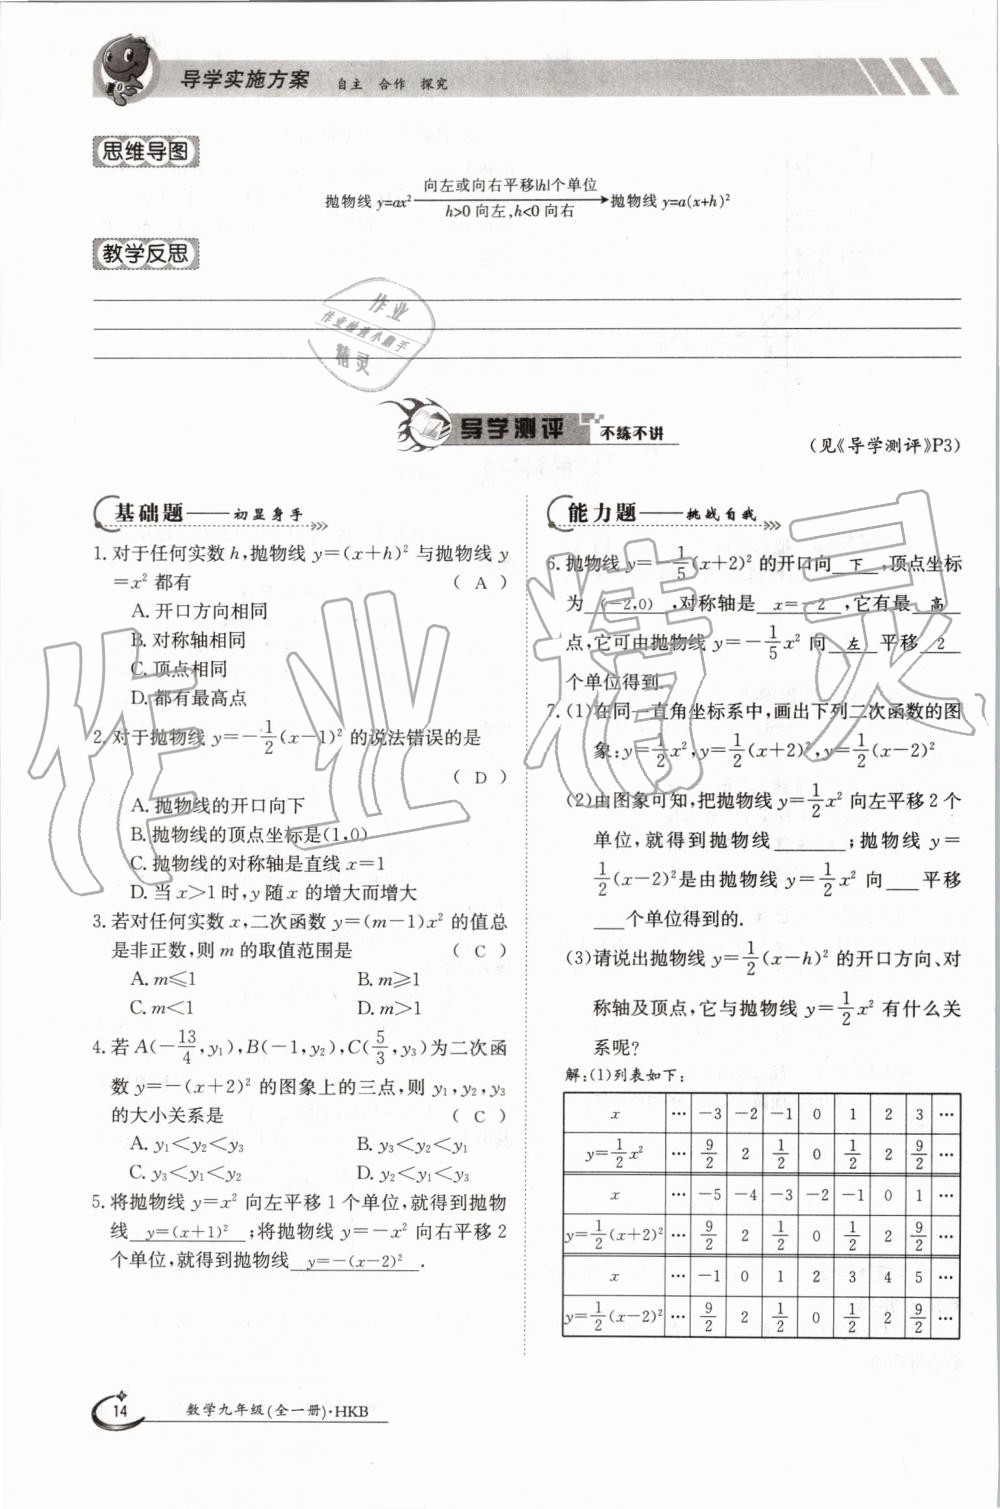 导学实施方案 自主 合作 探究
思维导图
向左或向右平移|h|个单位
抛物线 y=ax² 抛物线 y=a(x+h)²
h>0 向左,h<0 向右
教学反思
作业
作业检查小助手
精灵
导学测评 不练不讲
(见《导学测评》P3)
基础题——初显身手
1. 对于任何实数 h,抛物线 y=(x+h)² 与抛物线 y
=x² 都有 ( A )
A. 开口方向相同
B. 对称轴相同
C. 顶点相同
D. 都有最高点
2. 对于抛物线 y=-1/2(x-1)² 的说法错误的是
( D )
A. 抛物线的开口向下
B. 抛物线的顶点坐标是(1,0)
C. 抛物线的对称轴是直线 x=1
D. 当 x>1 时,y 随 x 的增大而增大
3. 若对任何实数 x,二次函数 y=(m-1)x² 的值总
是非正数,则 m 的取值范围是 ( C )
A. m≤1 B. m≥1
C. m<1 D. m>1
4. 若 A(-13/4,y₁),B(-1,y₂),C(5/3,y₃)为二次函
数 y=-(x+2)² 的图象上的三点,则 y₁,y₂,y₃
的大小关系是 ( C )
A. y₁<y₂<y₃ B. y₃<y₂<y₁
C. y₃<y₁<y₂ D. y₂<y₁<y₃
5. 将抛物线 y=x² 向左平移 1 个单位,就得到抛物
线 y=(x+1)² ;将抛物线 y=-x² 向右平移 2
个单位,就得到抛物线 y=-(x-2)² .
能力题——挑战自我
6. 抛物线 y=-1/5(x+2)² 的开口向 下 ,顶点坐标
为 (-2,0) ,对称轴是 x=-2 ,它有最 高
点,它可由抛物线 y=-1/5x² 向 左 平移 2
个单位得到.
7. (1)在同一直角坐标系中,画出下列二次函数的图
象:y=1/2x²,y=1/2(x+2)²,y=1/2(x-2)²
(2)由图象可知,把抛物线 y=1/2x² 向左平移 2 个
单位,就得到抛物线______;抛物线 y=
1/2(x-2)²是由抛物线 y=1/2x² 向___平移
___个单位得到的.
(3)请说出抛物线 y=1/2(x-h)² 的开口方向、对
称轴及顶点,它与抛物线 y=1/2x² 有什么关
系呢?
解:(1)列表如下:
x … -3 -2 -1 0 1 2 3 …
y=1/2x² … 9/2 2 1/2 0 1/2 2 9/2 …
x … -5 -4 -3 -2 -1 0 1 …
y=1/2(x+2)² … 9/2 2 1/2 0 1/2 2 9/2 …
x … -1 0 1 2 3 4 5 …
y=1/2(x-2)² … 9/2 2 1/2 0 1/2 2 9/2 …
14 数学九年级(全一册)·HKB
作业精灵